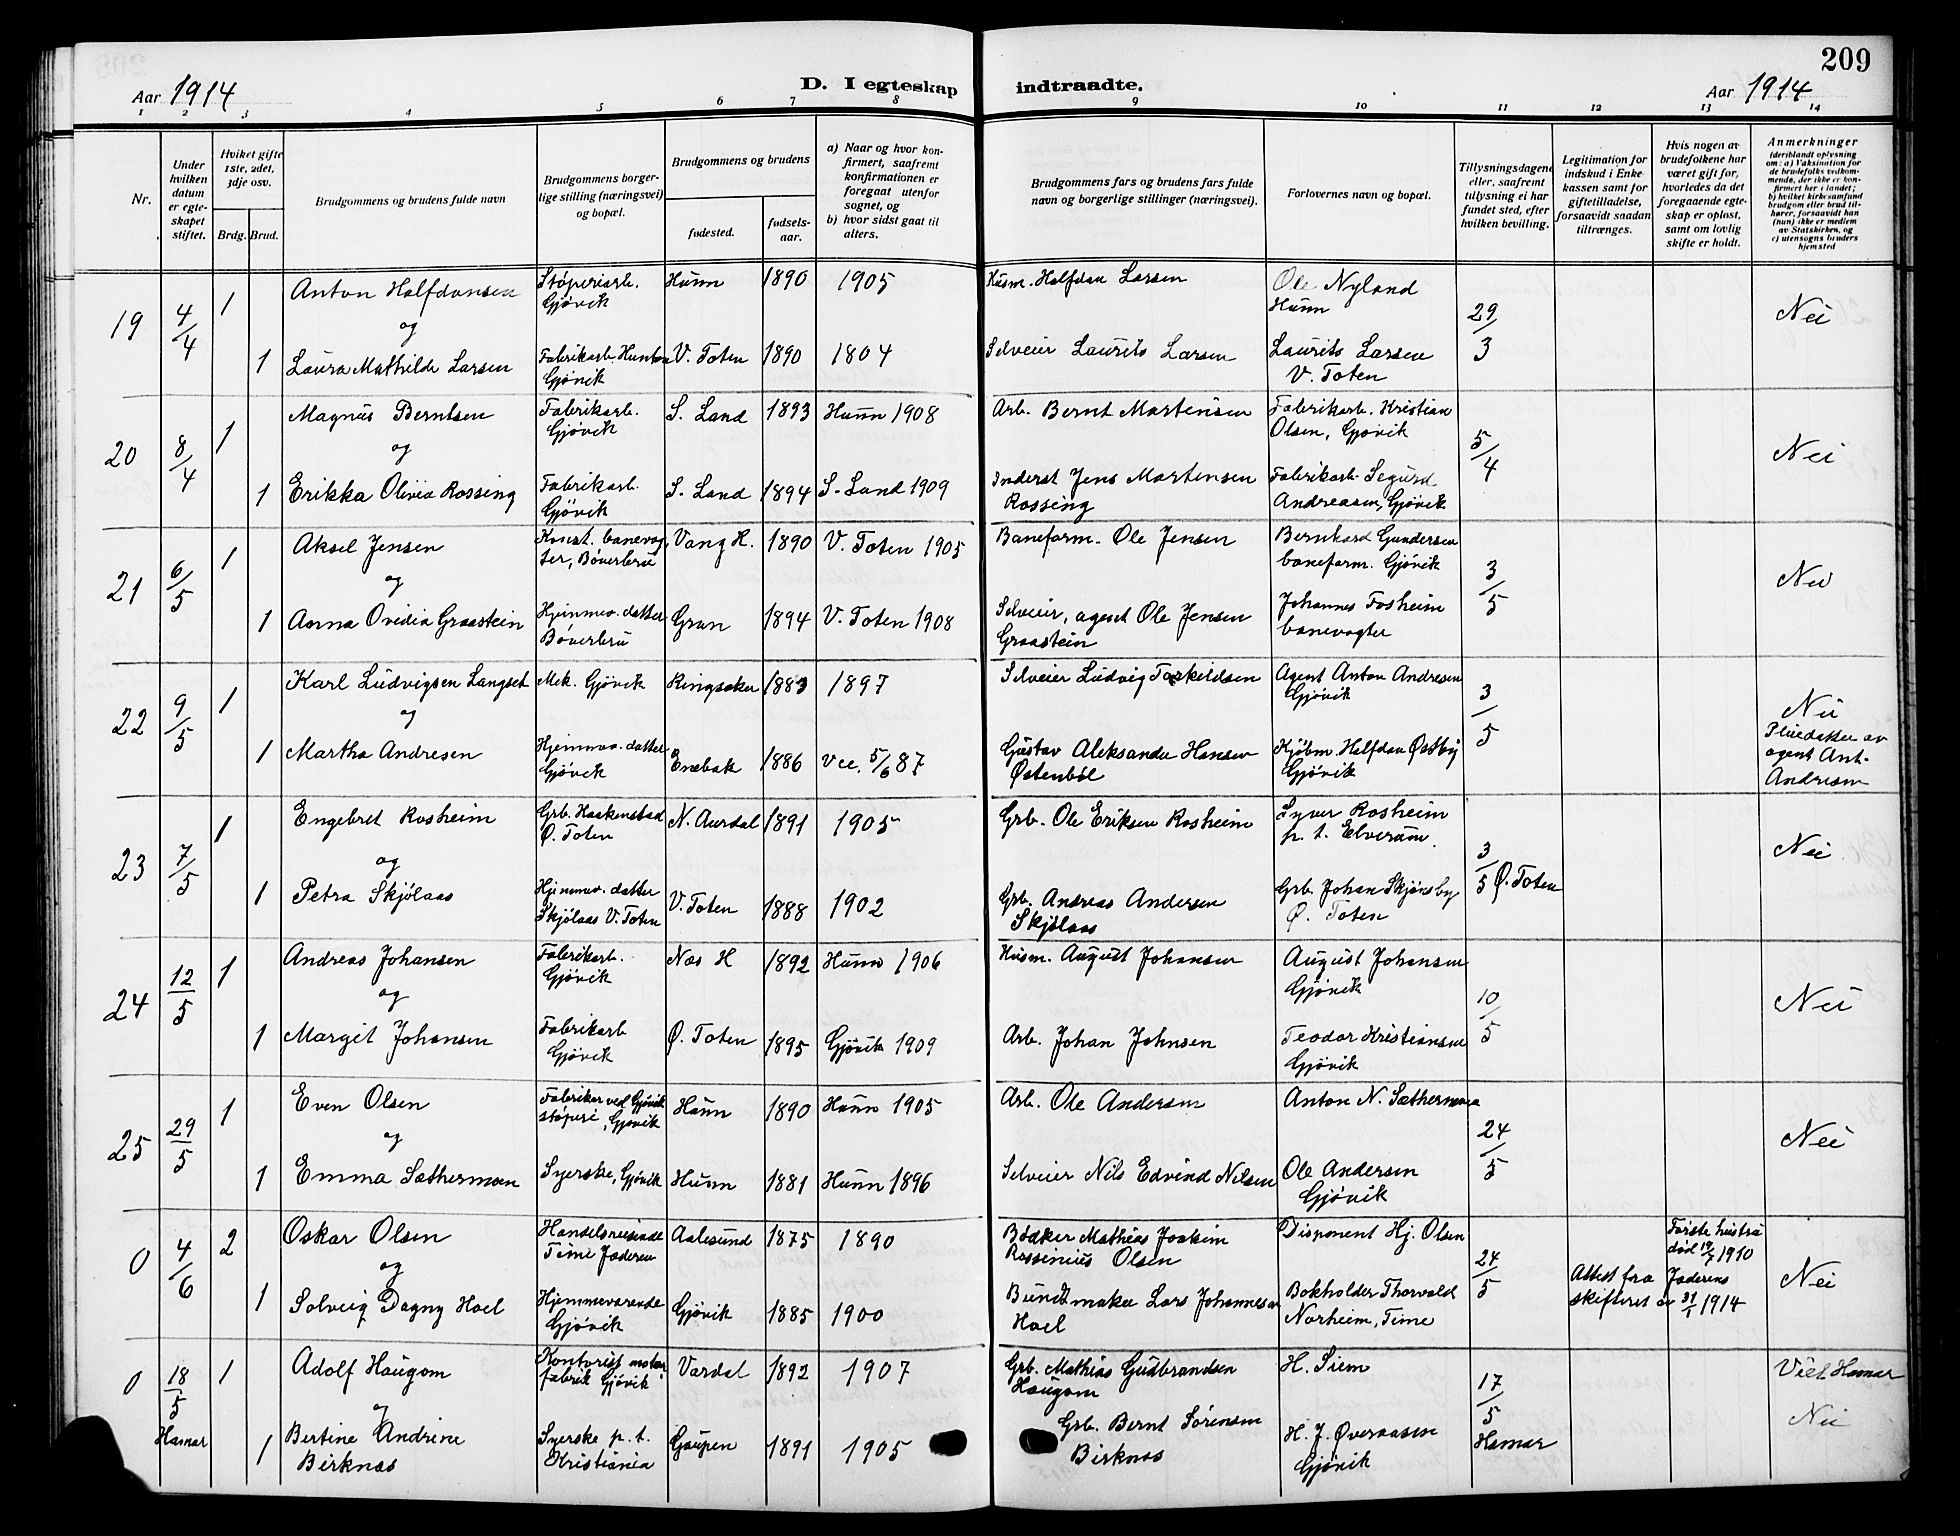 209
Aar 1914
D. I egteskap indtraadte.
Aar 1914
1 2 3 4 5 6 7 8 9 10 11 12 13 14
Nr.
Under hvilken datum er egteskapet stiftet.
Hviket gifte 1ste, 2det, 3dje osv.
Brdg. Brud.
Brudgommens og brudens fulde navn
Brudgommens borgerlige stilling (næringsvei) og bopæl.
Brudgommens og brudens
fødested.
fødselsaar.
a) Naar og hvor konfirmert, saafremt konfirmationen er foregaat utenfor sognet, og
b) hvor sidst gaat til alters.
Brudgommens fars og brudens fars fulde navn og borgerlige stillinger (næringsvei).
Forlovernes navn og bopæl.
Tillysningsdagene eller, saafremt tillysning ei har fundet sted, efter hvilken bevilling.
Legitimation for indskud i Enkekassen samt for giftetilladelse, forsaavidt saadan tiltrænges.
Hvis nogen av brudefolkene har været gift før, hvorledes da det foregaaende egteskap er opløst, samt om lovlig skifte er holdt.
Anmerkninger (deriblandt oplysning om: a) Vaksination for de brudefolks vedkommende, der ikke er konfirmert her i landet; b) hvilket kirkesamfund brudgom eller brud tilhører, forsaavidt han (hun) ikke er medlem av Statskirken, og c) utensogns bruders hjemsted
19 4/4 1 Anton Halfdansen Støperiarb. Gjøvik Hunn 1890 1905 Husm. Halfdan Larsen Ole Nyland Hunn 29/3 Nei
og
1 Laura Mathilde Larsen Fabrikarb. Hunton Gjøvik V. Toten 1890 1804 Selveier Laurits Larsen Laurits Larsen V. Toten
20 8/4 1 Magnus Berntsen Fabrikarb. Gjøvik S. Land 1893 Hunn 1908 Arb. Bernt Martensen Fabrikarb. Kristian Olsen, Gjøvik 5/4 Nei
og
1 Erikka Olivia Rossing Fabrikarb. Gjøvik S. Land 1894 S. Land 1909 Inderst Jens Martensen Rossing Fabrikarb. Segurd Andreasen, Gjøvik
21 6/5 1 Aksel Jensen Konst. banevogter, Bøverbru Vang H. 1890 V. Toten 1905 Baneform. Ole Jensen Bernhard Gundersen baneform. Gjøvik 3/5 Nei
og
1 Anna Ovidia Graastein Hjemmev. datter Bøverbru Gran 1894 V. Toten 1908 Selveier, agent Ole Jensen Graastein Johannes Fosheim banevogter
22 9/5 1 Karl Ludvigsen Langset Mek. Gjøvik Ringsaker 1883 1897 Selveier Ludvig Torkildsen Agent Anton Andresen Gjøvik 3/5 Nei
og
1 Martha Andresen Hjemmev. datter Gjøvik Enebak 1886 vce. 5/6 87 Gustav Aleksander Hansen Østenbøl Kjøbm. Halfdan Østby Gjøvik Pleiedatter av agent Ant. Andresen
23 7/5 1 Engebret Rosheim Grb. Haakenstad Ø. Toten N. Aurdal 1891 1905 Grb. Ole Eriksen Rosheim Syver Rosheim p. t. Elverum. 3/5 Ø. Toten Nei
og
1 Petra Skjølaas Hjemmev. datter Skjølaas V. Toten V. Toten 1888 1902 Grb. Andreas Andersen Skjølaas Grb. Johan Skjønsby Ø. Toten
24 12/5 1 Andreas Johansen Fabrikarb. Gjøvik Næs H 1892 Hunn 1906 Husm. August Johansen August Johansen Gjøvik 10/5 Nei
og
1 Margit Johansen Fabrikarb Gjøvik Ø. Toten 1895 Gjøvik 1909 Arb. Johan Johnsen Teodor Kristiansen Gjøvik
25 29/5 1 Even Olsen Fabrikar ved Gjøvik støperi, Gjøvik Hunn 1890 Hunn 1905 Arb. Ole Andersen Anton N. Sæthermoen 24/5 Nei
og
1 Emma Sæthermoen Syerske, Gjøvik Hunn 1881 Hunn 1896 Selveier Nils Edvind Nilsen Ole Andersen Gjøvik
0 4/6 2 Oskar Olsen Handelsreisende Time Jæderen Aalesund 1875 1890 Bødker Mathias Joakim Rossinius Olsen Disponent Hj. Olsen 24/5 Første hustru død 19/7 1910 Nei
og
1 Solveig Dagny Hoel Hjemmeværende Gjøvik Gjøvik 1885 1900 Buntmaker Lars Johannesen Hoel Bokholder Thorvald Norheim, Time Attest fra Jæderens skifteret av 31/1 1914
0 18/5 Hamar 1 Adolf Haugom Kontorist motorfabrik Gjøvik Vardal 1892 1907 Grb. Mathias Gudbrandsen Haugom H. Siem 17/5 Hamar Viet Hamar
og
1 Bertine Andrine Birknes Syerske p. t. Kristiania Gaupen 1891 1905 Grb. Bernt Sørensen Birknes H. J. Øveraasen Gjøvik Nei